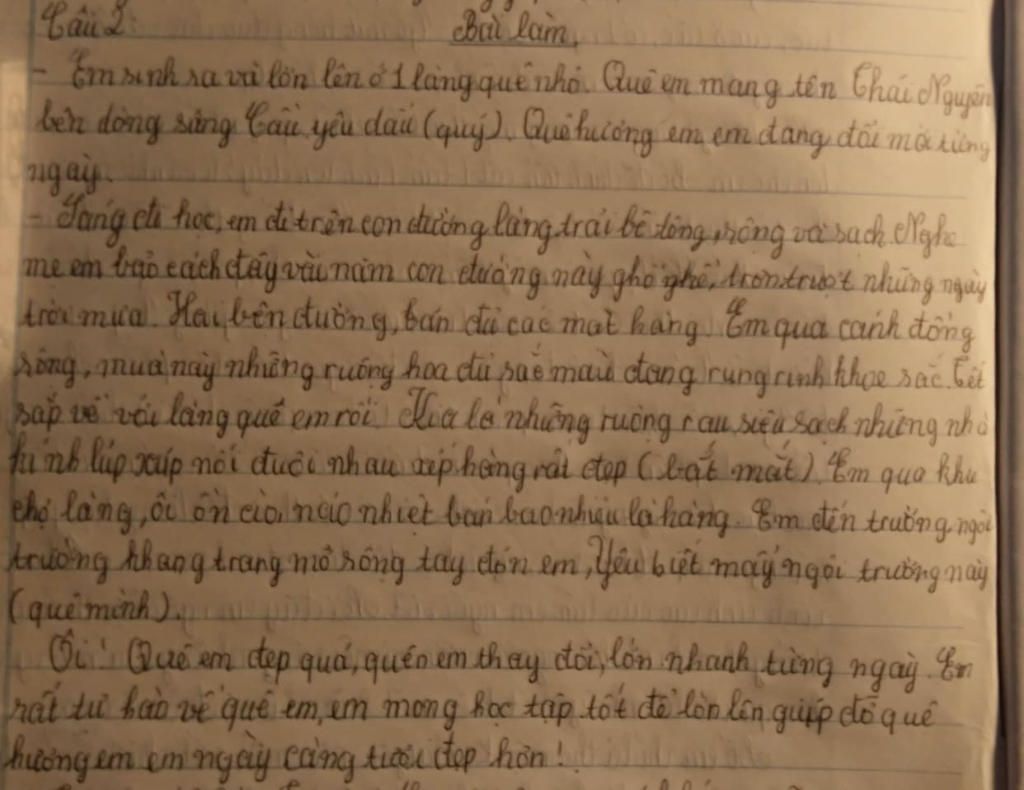 Câu 2 Bài làm.
- Em sinh ra và lớn lên ở 1 làng quê nhỏ. Quê em mang tên Thái Nguyên
bên dòng sông Cầu yêu dấu (quý). Quê hương em em đang đổi mới từng
ngày.
- Sáng đi học, em đi trên con đường làng trải bê tông, rộng và sạch. Nghe
mẹ em bảo cách đây vài năm con đường này ghồ ghề, trơn trượt những ngày
trời mưa. Hai bên đường, bán đủ các mặt hàng. Em qua cánh đồng
rộng, mùa này những ruộng hoa đủ sắc màu đang rung rinh khoe sắc. Tết
sắp về với làng quê em rồi. Kia là những ruộng rau siêu sạch những nhà
kính lúp xúp nối đuôi nhau xếp hàng rất đẹp (bắt mắt). Em qua khu
chợ làng, ôi ồn ào, náo nhiệt bán bao nhiêu là hàng. Em đến trường, ngôi
trường khang trang mở rộng tay đón em, Yêu biết mấy ngôi trường này
(quê mình).
Ôi! Quê em đẹp quá, quê em thay đổi, lớn nhanh từng ngày. Em
rất tự hào về quê em, em mong học tập tốt để lớn lên giúp đỡ quê
hương em em ngày càng tươi đẹp hơn!